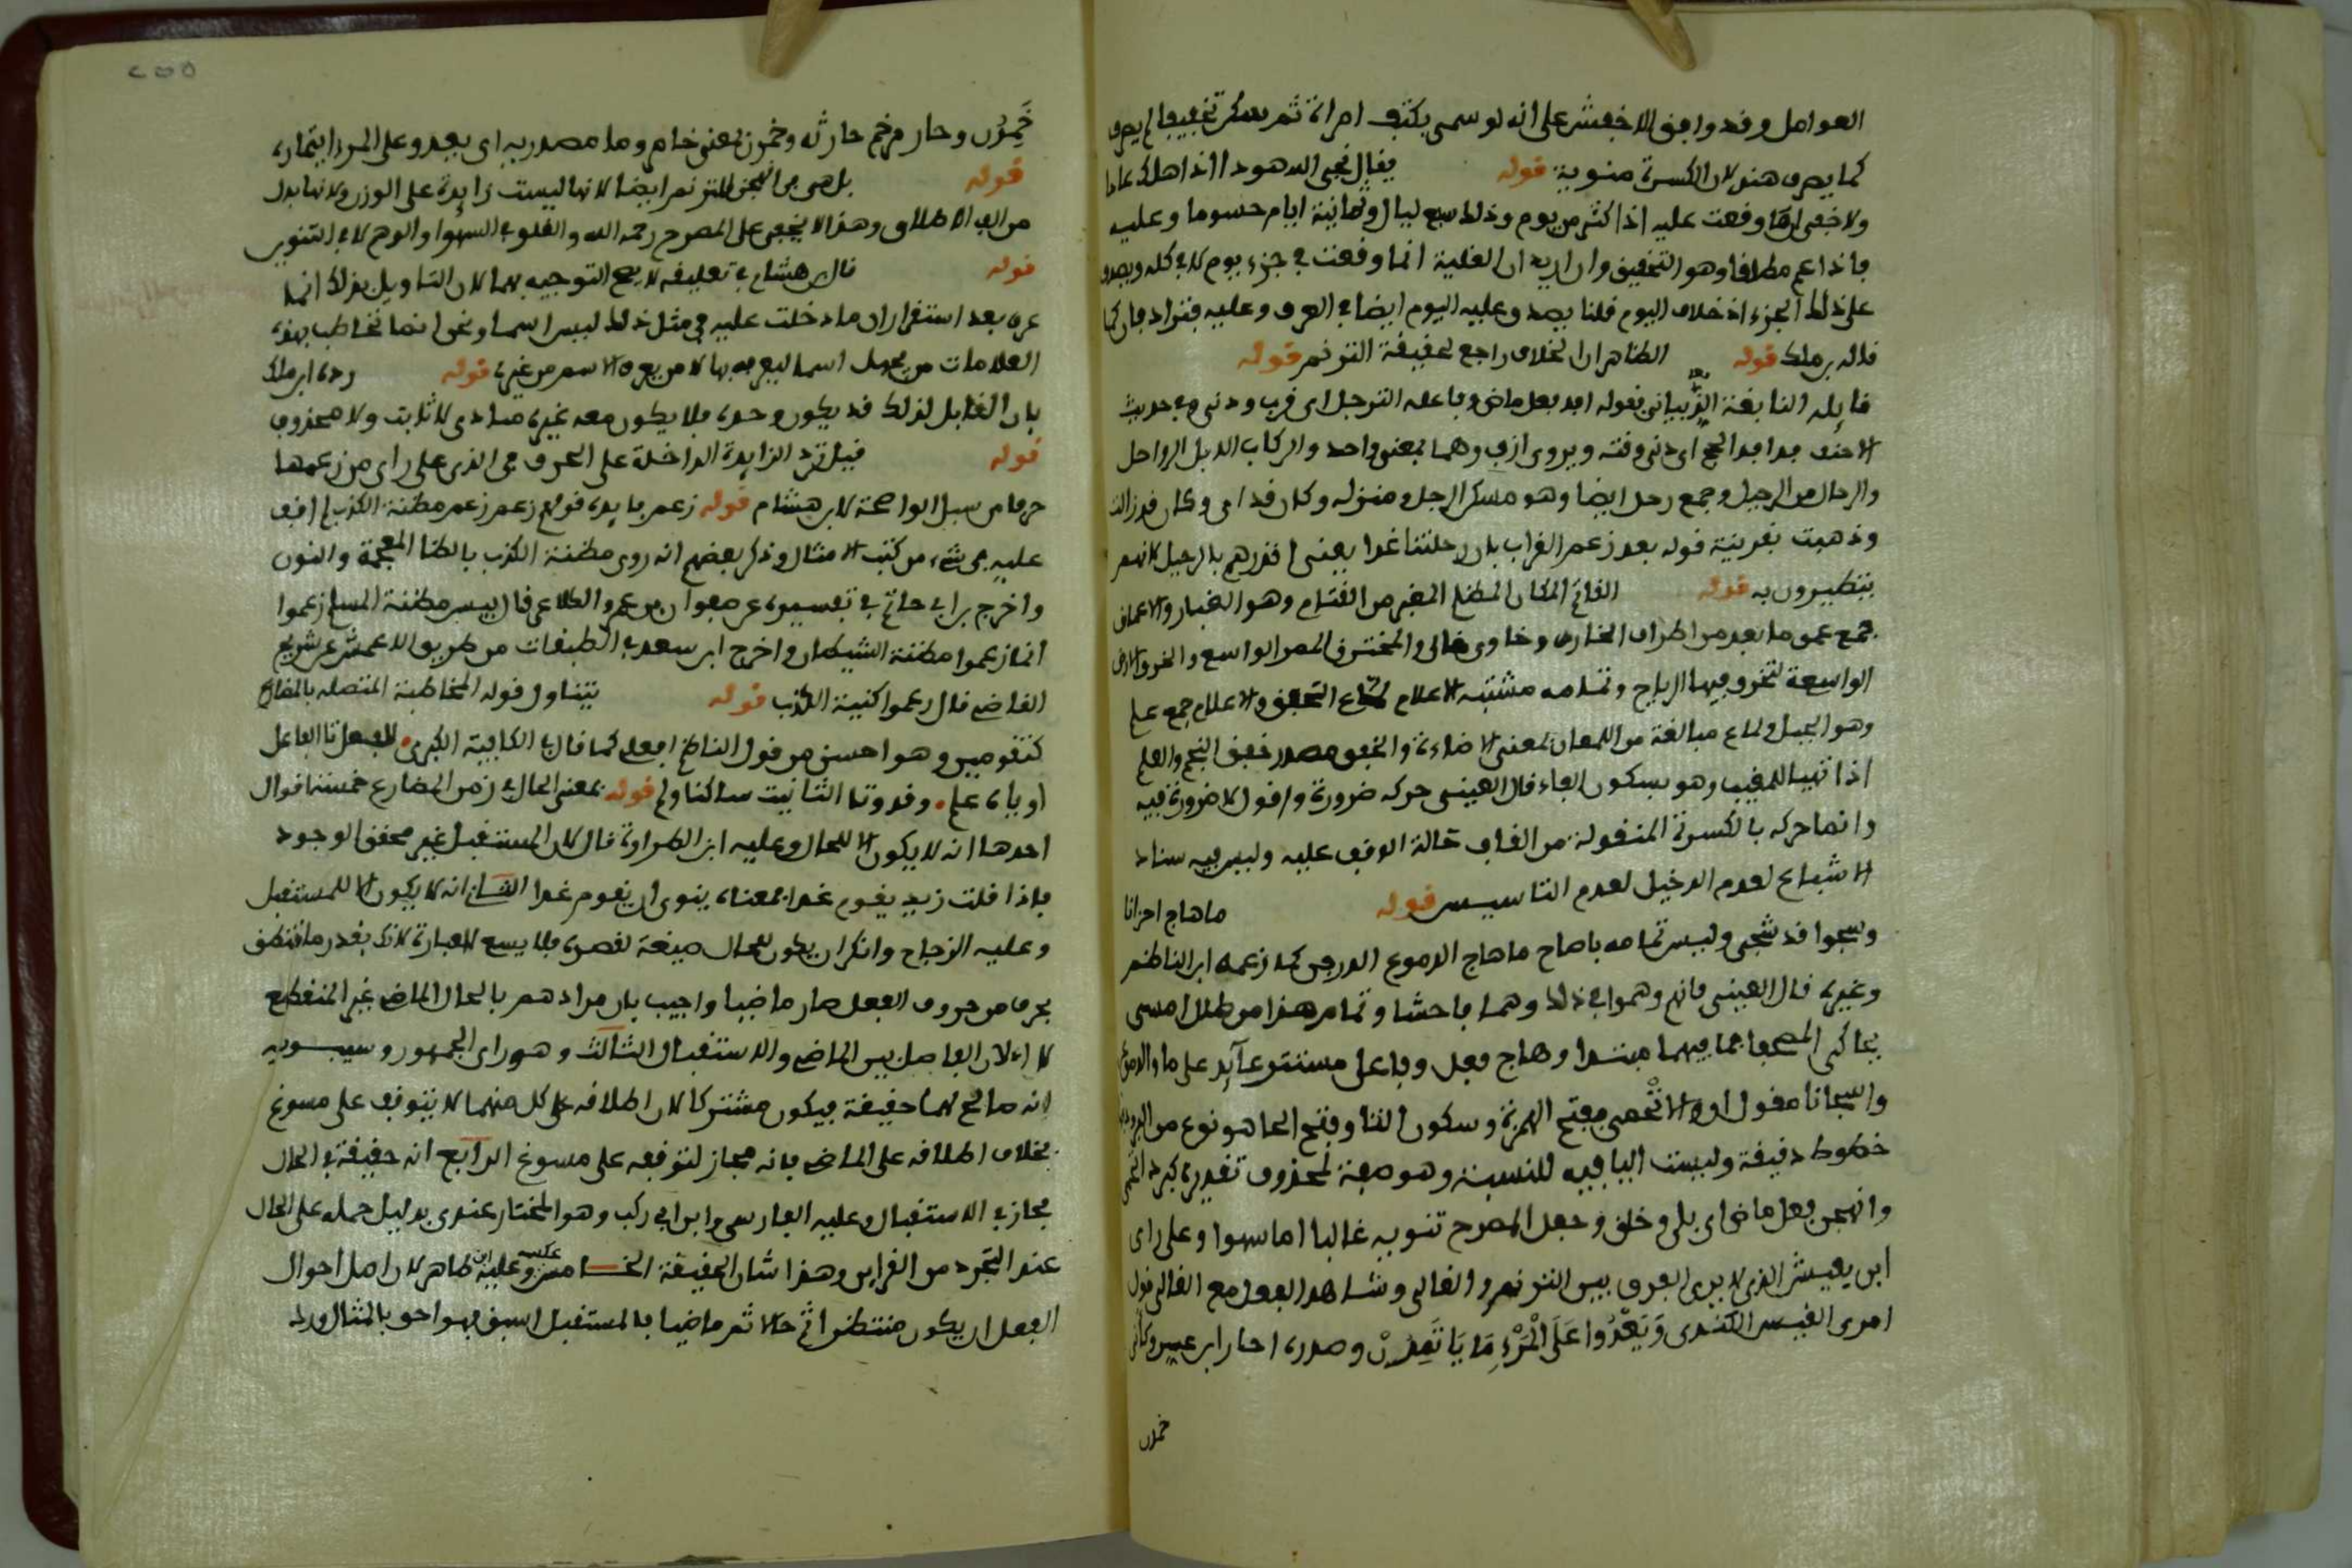 العوامل وقد وافق الاخفش على انه لو سمى بكتف امراة ثم سكر تخفيفا لم يصرف
كما يصرف هند لان الكسرة منوية قوله يقال نجى الله هودا اذ اهلك عادا
ولا خفى انها وقعت عليه اذا كثر من يوم وذلك سبع ليال وثمانية ايام حسوما وعليه
فاذا عم مطلقا وهو التحقيق وان اريد ان الغلبة انما وقعت في جزء يوم لا في كله ويصدق
على ذلك الجزء اذ خلاف اليوم قلنا يصدق عليه اليوم ايضا في العرف وعليه فتزاد فان كما
قاله بن ملك قوله الظاهر ان الخلاف راجع لحقيقة الترنم قوله
قايله النابغة الذبياني بقوله افد فعل ماض وفاعله الترحل اى قرب ودنى وفي حديث
الاحنف قد افد الحج اى دنى وقته ويروى ازف وهما بمعنى واحد والركاب الابل الرواحل
والرحال من الرحيل وجمع رحل ايضا وهو مسكن الرجل ومنزله وكان قد اى وكان قد زالت
وذهبت بقرينة قوله بعد زعم الغراب بان رحلتنا غدا يعنى انذرهم بالرحيل لانهم
يتطيرون به قوله القاتم المكان المظلم المغبر من القتام وهو الغبار والاعماق
جمع عمق ما بعد من اطراف المفازة وخاوى خالى والمخترق الممر الواسع والخرق الارض
الواسعة تتخرق فيها الرياح وتمامه مشتبه الاعلام لماع الخفق والاعلام جمع علم
وهو الجبل ولماع مبالغة من اللمعان بمعنى الاضاءة والخفق مصدر خفق النجم والعلم
اذا تهيا للمغيب وهو بسكون الفاء قال العينى حركه ضرورة واقول لا ضرورة فيه
وانما حركه بالكسرة المنقولة من القاف حالة الوقف عليه وليس فيه سناد
الاشباع لعدم الدخيل لعدم التاسيس قوله ما هاج احزانا
وشجوا قد شجى وليس تمامه يا صاح ما هاج الدموع الذرفن كما زعمه ابن الناظم
وغيره قال العينى فانهم وهموا في ذلك وهما فاحشا وتمام هذا من طلل امسى
يحاكى المصحفا فما فيهما مبتدا وهاج فعل وفاعل مستتر عآيد على ما والدموع
واشجانا مفول اول والاتحمى بفتح الهمزة وسكون التا وفتح الحا هو نوع من البرود بها
خطوط دقيقة وليست اليا فيه للنسبة وهو صفة لمحذوف تقديره كبرد اتحمى
وانهجن فعل ماض اى بلى وخلق وجعل المصرح تنوينه غالبا اما سهوا وعلى راى
ابن يعيش الذى لا يرى الفرق بين الترنم والغالى وشاهد الفعل مع الغالى قول
امرى القيس الكندى وَيَعْدُوا عَلَى الْمَرْءِ مَا يَاتَمِرْنْ وصدره احار ابن عمرو كانى
خمرن
٢٥٥
خَمِرُن وحار مرخم حارثة وخمرن بمعنى خامر وما مصدرية اى يعدو على المرء ايتماره
قوله بل هى من اللحق للترنم ايضا لانها ليست زايدة على الوزن ولانها بدل
من الف الاطلاق وهذا لا يخفى على المصرح رحمه الله والقلوب في السهو او الوهم لا في التنوين
قوله قال بن هشام في تعليقه لا يصح التوجيه بهما لان التاويل بذلك انما
عرف بعد استقرار ان ما دخلت عليه في مثل ذلك ليس اسما ونحن انما نخاطب بهذه
العلامات من يجهل اسما ليعرفه بها لا من يعرف الاسم من غيره قوله رده ابن ملك
بان القايل لذلك قد يكون وحده فلا يكون معه غيره منادى لا ثابت ولا محذوف
قوله قيل ترد الزايدة الداخلة على الحرف هى الذى على راى من زعمها
حرفا من سبل الواضحة لابن هشام قوله زعم فايده قولهم زعم زعم مطنة الكذب لم اقف
عليه في شىء من كتب الامثال وذكر بعضهم انه روى مظنة الكذب بالظا المعجمة والنون
واخرج بن ابى حاتم في تفسيره عن صفوان بن عمرو الكلاعى قال بيس مظنة المسلم زعموا
انما زعموا مظنة الشيطان واخرج ابن سعد في الطبقات من طريق الاعمش عن شريح
القاضى قال زعموا كنية الكذب قوله يتناول قوله المخاطبة المتصلة بالمضارع
كتقومين وهو احسن من قول الناظم افعلى كما قال في الكافية الكبرى للفعل تا الفاعل
او ياء علم وقد وتا التانيث ساكنا ولم قوله بمعنى الحال في زمن المضارع خمسة اقوال
احدها انه لا يكون الا للحال وعليه ابن الطراوة قال لان المستقبل غير محقق الوجود
فاذا قلت زيد يقوم غدا فمعناه ينوى ان يقوم غدا الثانى انه لا يكون الا للمستقبل
وعليه الزجاج وانكر ان يكون للحال صيغة لقصره فلا يسع العبارة لانك بقدر ما تنطق
بحرف من حروف الفعل صار ماضيا واجيب بان مرادهم بالحال الماضى غير المنقطع
لا الان الفاصل بين الماضى والاستقبال الثالث وهو راى الجمهور وسيبويه
انه صالح لهما حقيقة فيكون مشتركا لان اطلاقه على كل منهما لا يتوقف على مسوغ
بخلاف اطلاقه على الماضى فانه مجاز لتوقفه على مسوغ الرابع انه حقيقة في الحال
مجاز في الاستقبال وعليه الفارسى وابن ابى ركب وهو المختار عندى بدليل حمله على الحال
عند التجرد من القراين وهذا شان الحقيقة الخامس عكسه وعليه ابن طاهر لان اصل احوال
الفعل ان يكون منتظرا ثم حالا ثم ماضيا فالمستقبل اسبق فهو احق بالمثال ورد